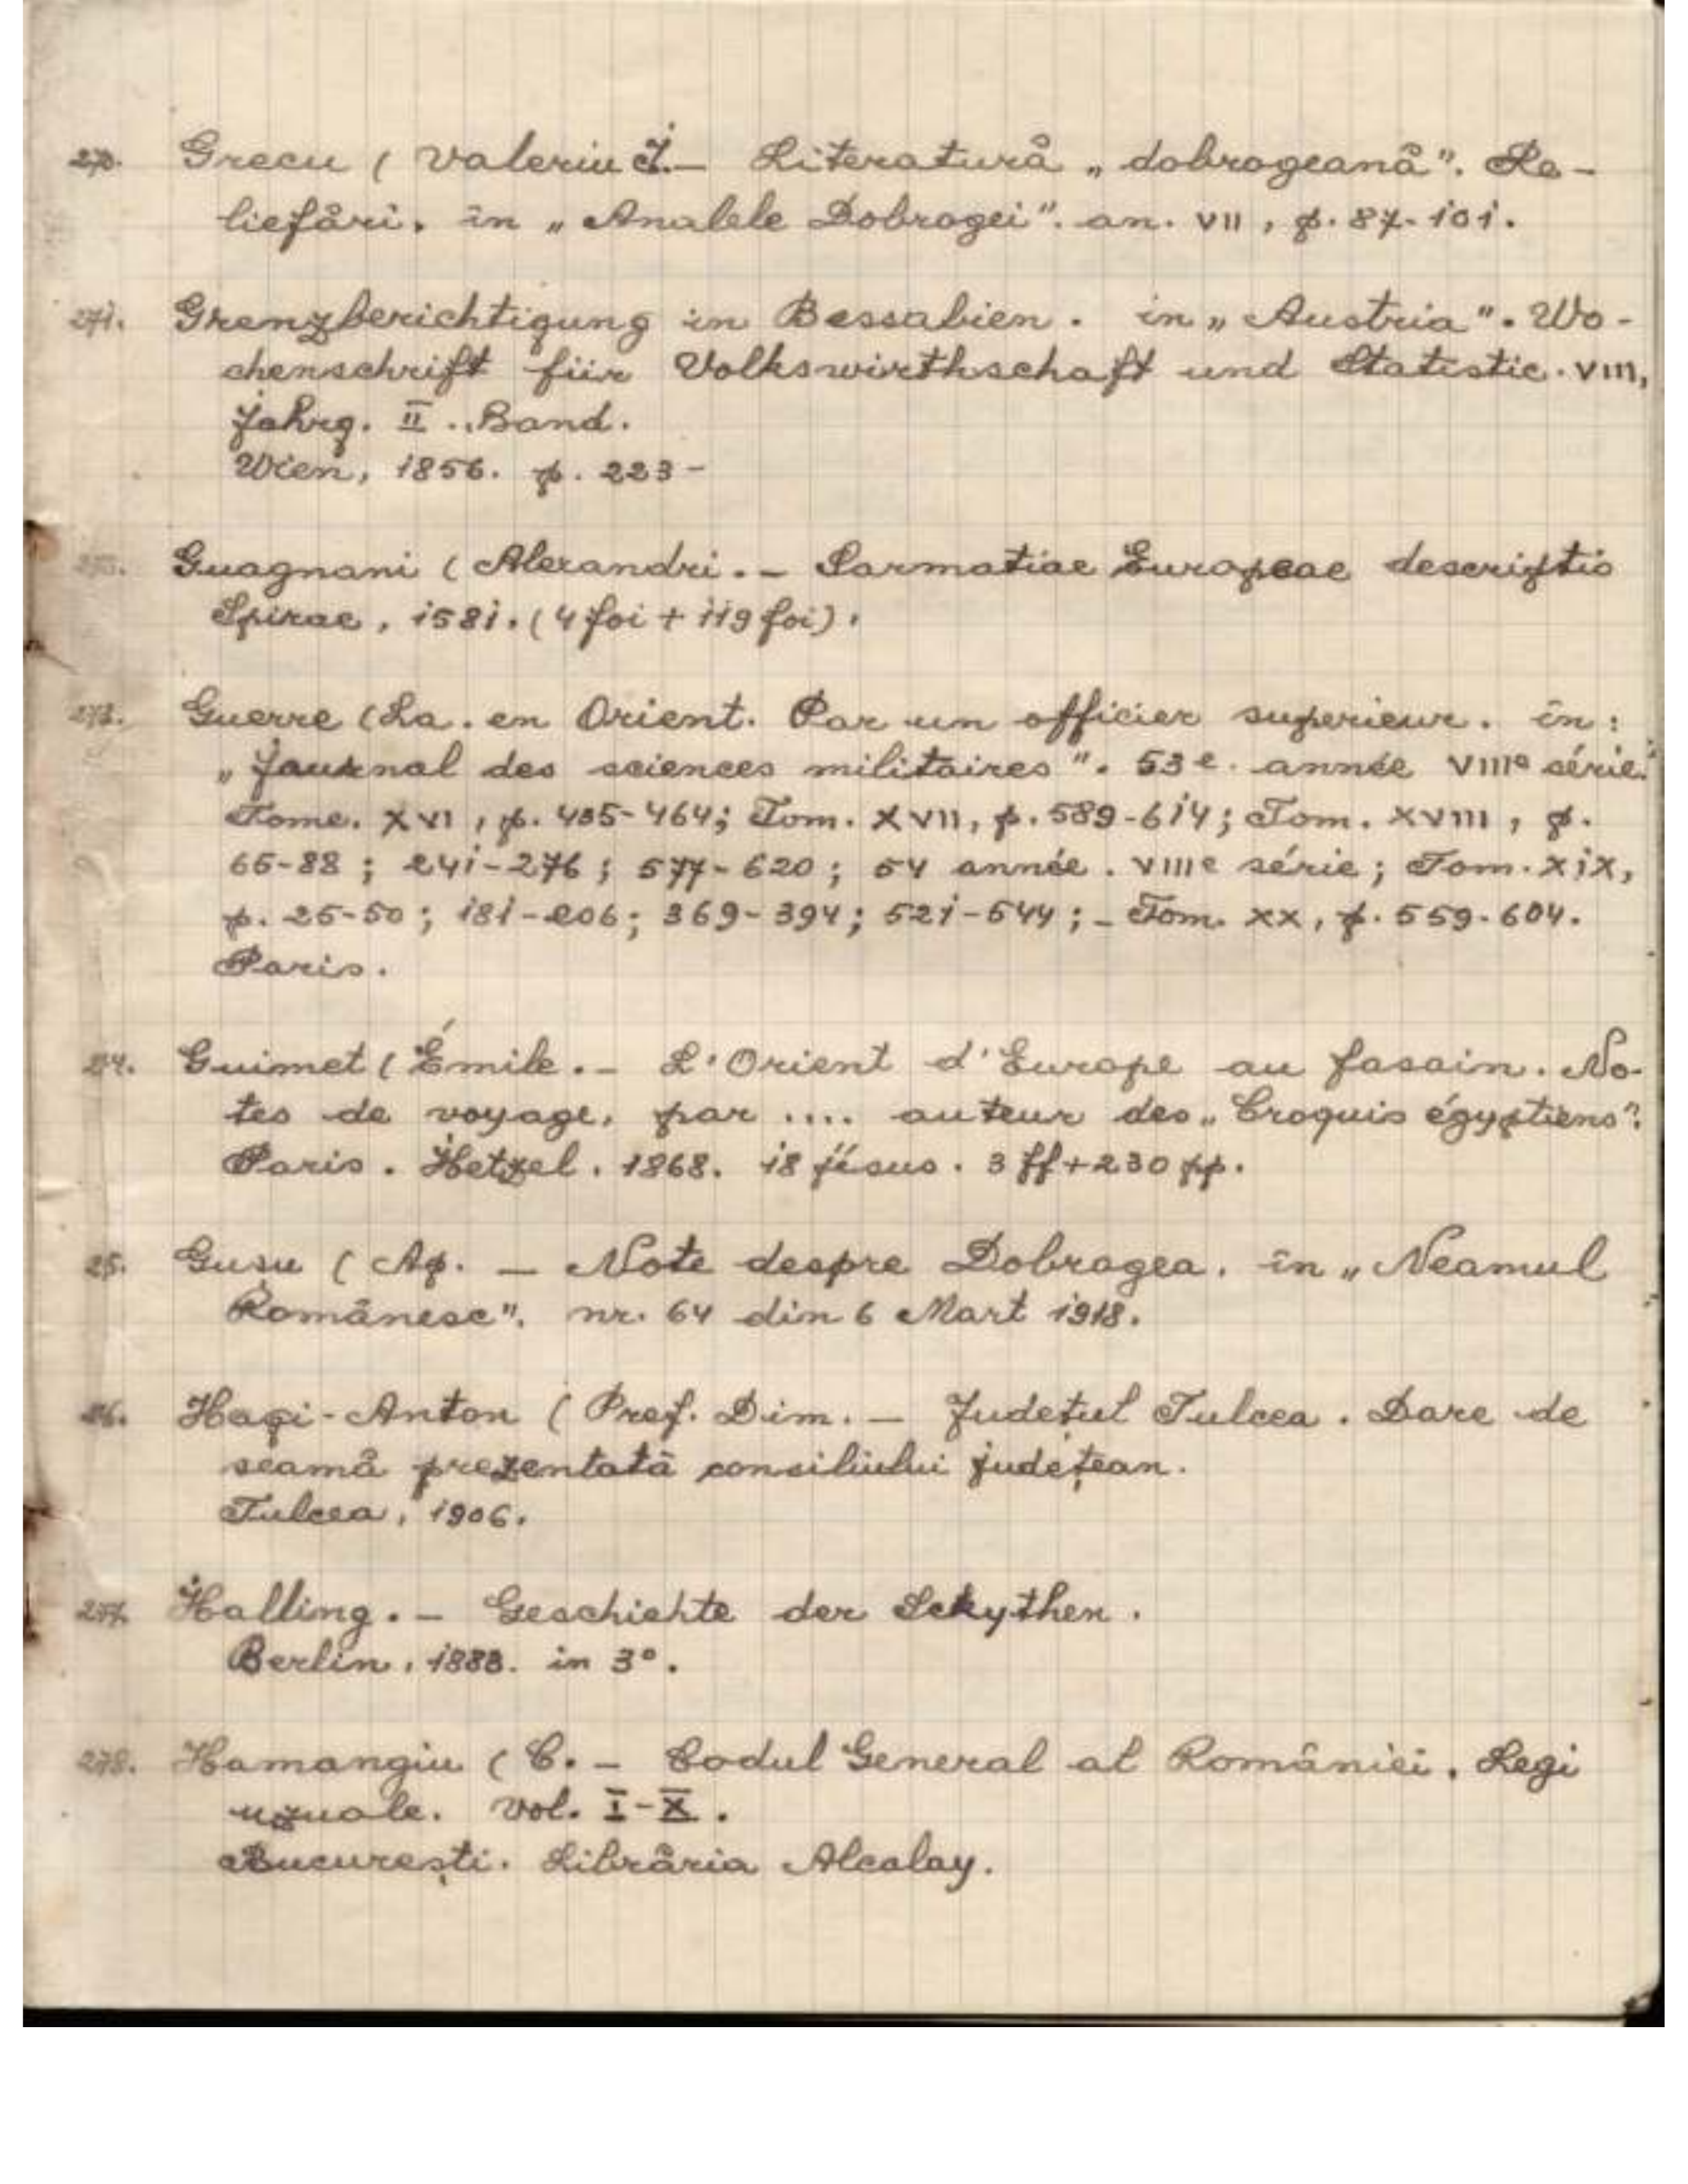 270. Grecu (Valeriu I. — Literatură „dobrogeană". Re-
liefări. în „Analele Dobrogei". an. VII, p. 87-101.
271. Grenzberichtigung in Bessabien. in „Austria". Wo-
chenschrift für Volkswirthschaft und Statistic. VIII,
Jahrg. II. Band.
Wien, 1856. p. 223-
272. Guagnani (Alexandri. — Sarmatiae Europeae descriptio
Spirae, 1581. (4 foi + 119 foi).
273. Guerre (La. en Orient. Par un officier superieur. în:
„Journal des sciences militaires". 53e. année VIIIe série.
Tome. XVI, p. 435-464; Tom. XVII, p. 589-614; Tom. XVIII, p.
65-88; 241-276; 577-620; 54 année. VIIIe série; Tom. XIX,
p. 25-50; 181-206; 369-394; 521-544; — Tom. XX, p. 559-604.
Paris.
274. Guimet (Émile. — L'Orient d'Europe au fasain. No-
tes de voyage, par .... auteur des „Croquis égyptiens".
Paris. Hetzel. 1868. 18 jésus. 3 ff+230 pp.
25. Gusu (Ap. — Note despre Dobrogea. în „Neamul
Românesc". nr. 64 din 6 Mart 1918.
26. Hagi-Anton (Prof. Dim. — Județul Tulcea. Dare de
seamă prezentată consiliului județean.
Tulcea, 1906.
277. Halling. — Geschichte der Sckythen.
Berlin, 1888. in 3°.
278. Hamangiu (C. — Codul General al României. Legi
uzuale. Vol. I-X.
București. Librăria Alcalay.